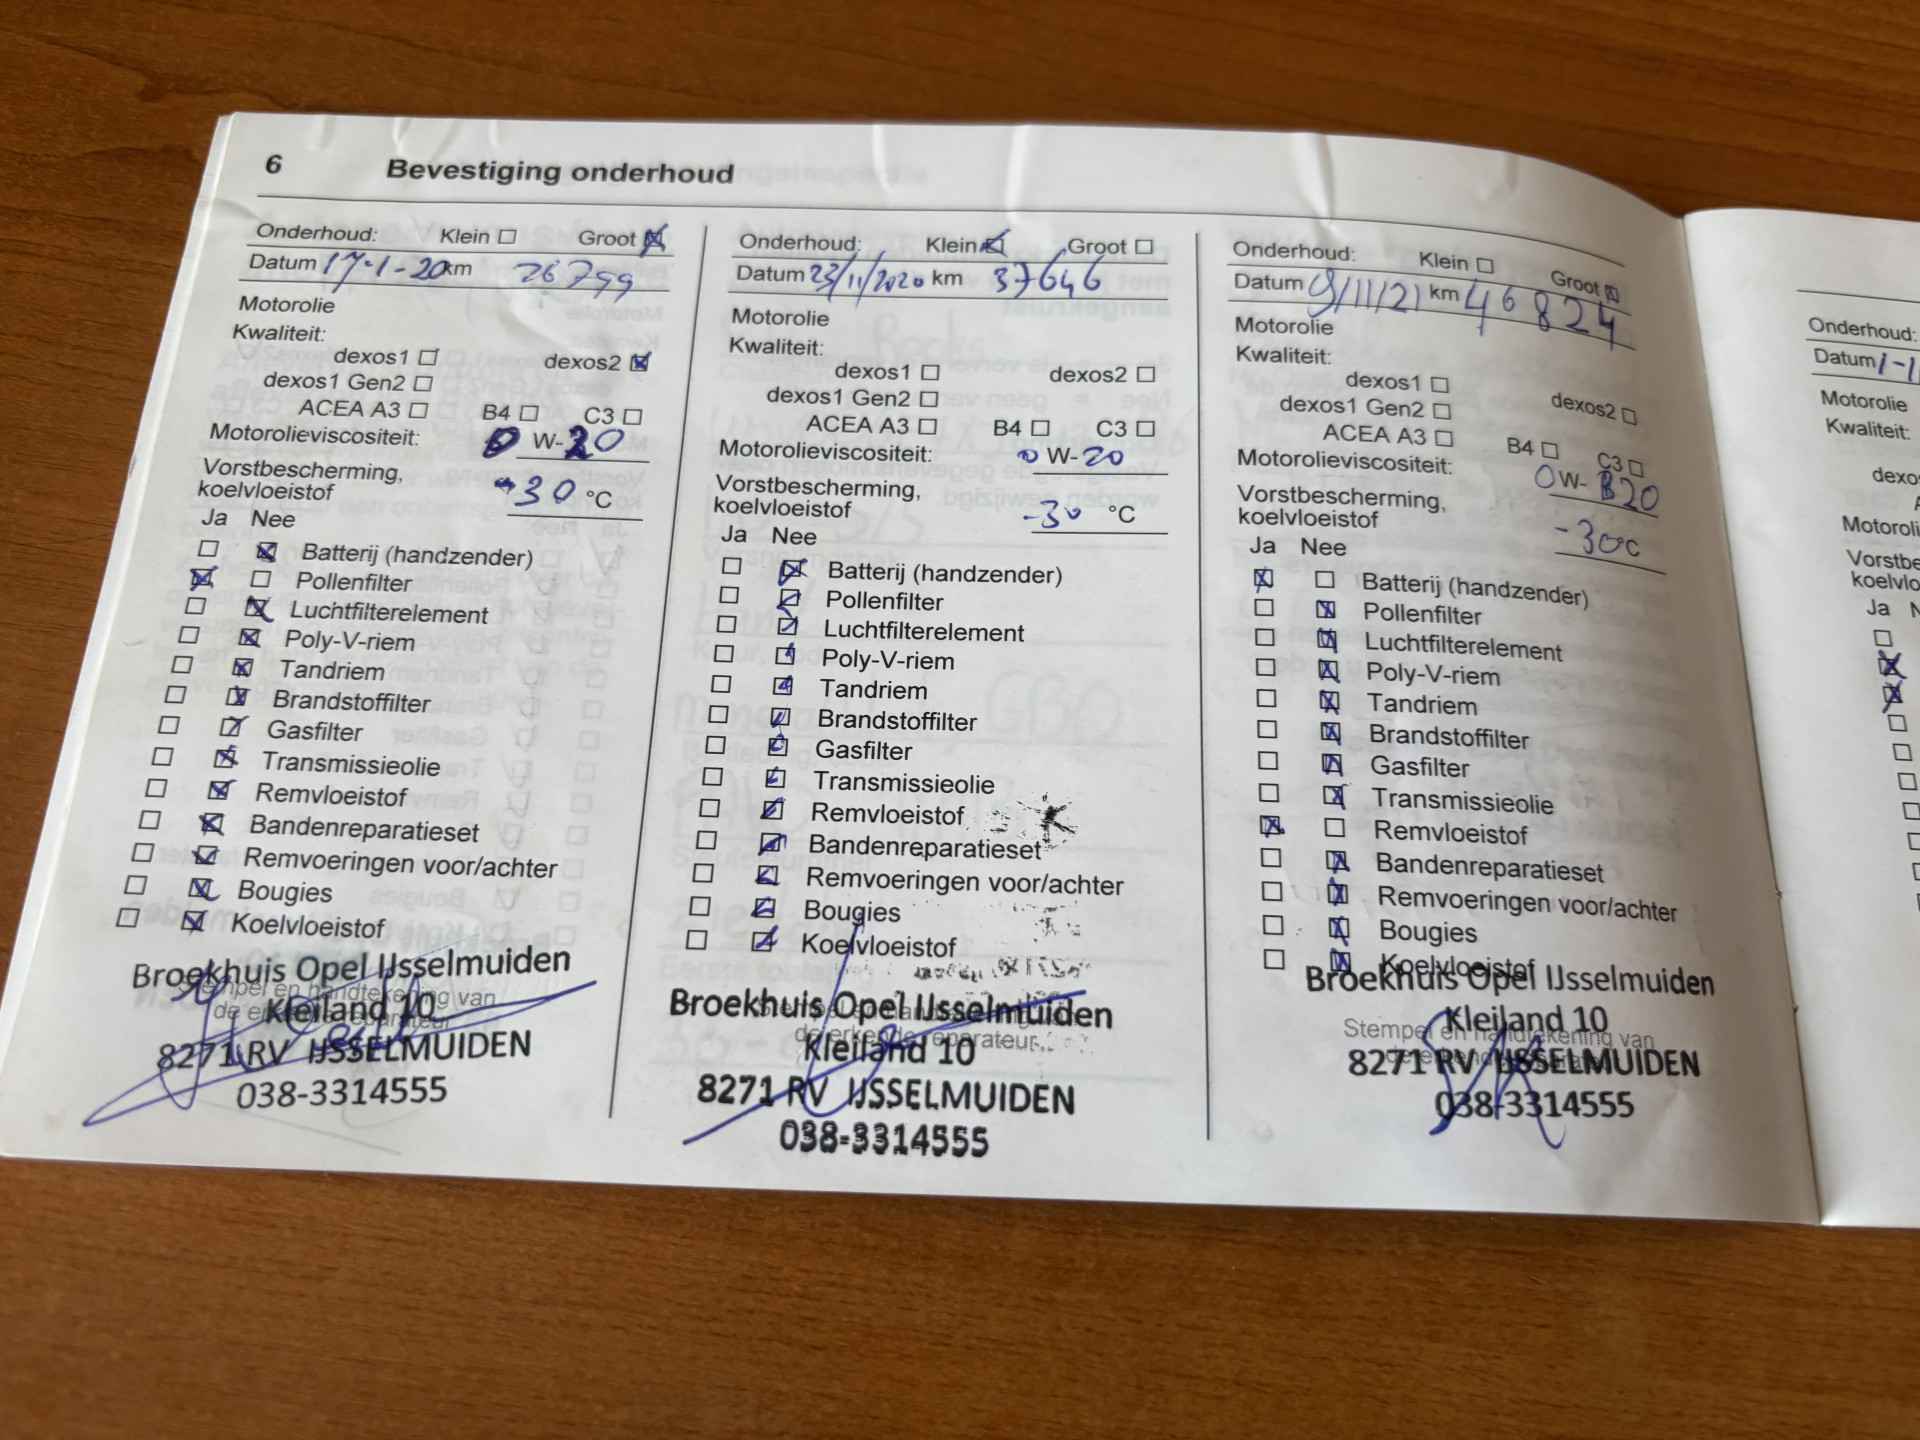 6 Bevestiging onderhoud
Onderhoud: Klein ☐ Groot ☒
Datum 17-1-20 km 26799
Motorolie
Kwaliteit:
dexos1 ☐ dexos2 ☒
dexos1 Gen2 ☐
ACEA A3 ☐ B4 ☐ C3 ☐
Motorolieviscositeit: 0 W-20
Vorstbescherming,
koelvloeistof -30 °C
Ja Nee
☐ ☒ Batterij (handzender)
☒ ☐ Pollenfilter
☐ ☒ Luchtfilterelement
☐ ☒ Poly-V-riem
☐ ☒ Tandriem
☐ ☒ Brandstoffilter
☐ ☒ Gasfilter
☐ ☒ Transmissieolie
☐ ☒ Remvloeistof
☐ ☒ Bandenreparatieset
☐ ☒ Remvoeringen voor/achter
☐ ☒ Bougies
☐ ☒ Koelvloeistof
Broekhuis Opel IJsselmuiden
Stempel en handtekening van
Kleiland 10
de erkende reparateur
8271 RV IJSSELMUIDEN
038-3314555
Onderhoud: Klein ☒ Groot ☐
Datum 23/11/2020 km 37646
Motorolie
Kwaliteit:
dexos1 ☐ dexos2 ☐
dexos1 Gen2 ☐
ACEA A3 ☐ B4 ☐ C3 ☐
Motorolieviscositeit: 0 W-20
Vorstbescherming,
koelvloeistof -30 °C
Ja Nee
☐ ☒ Batterij (handzender)
☐ ☒ Pollenfilter
☐ ☒ Luchtfilterelement
☐ ☒ Poly-V-riem
☐ ☒ Tandriem
☐ ☒ Brandstoffilter
☐ ☒ Gasfilter
☐ ☒ Transmissieolie
☐ ☒ Remvloeistof
☐ ☒ Bandenreparatieset
☐ ☒ Remvoeringen voor/achter
☐ ☒ Bougies
☐ ☒ Koelvloeistof
Broekhuis Opel IJsselmuiden
Stempel en handtekening van
de erkende reparateur
Kleiland 10
8271 RV IJSSELMUIDEN
038-3314555
Onderhoud: Klein ☐ Groot ☒
Datum 9/11/21 km 46824
Motorolie
Kwaliteit:
dexos1 ☐ dexos2 ☐
dexos1 Gen2 ☐
ACEA A3 ☐ B4 ☐ C3 ☐
Motorolieviscositeit: 0 W-20
Vorstbescherming,
koelvloeistof -30 °C
Ja Nee
☒ ☐ Batterij (handzender)
☐ ☒ Pollenfilter
☐ ☒ Luchtfilterelement
☐ ☒ Poly-V-riem
☐ ☒ Tandriem
☐ ☒ Brandstoffilter
☐ ☒ Gasfilter
☐ ☒ Transmissieolie
☒ ☐ Remvloeistof
☐ ☒ Bandenreparatieset
☐ ☒ Remvoeringen voor/achter
☐ ☒ Bougies
☐ ☒ Koelvloeistof
Broekhuis Opel IJsselmuiden
Kleiland 10
Stempel en handtekening van
de erkende reparateur
8271 RV IJSSELMUIDEN
038-3314555
Onderhoud:
Datum 1-1
Motorolie
Kwaliteit:
dexo
Motoroli
Vorstbe
koelvlo
Ja N